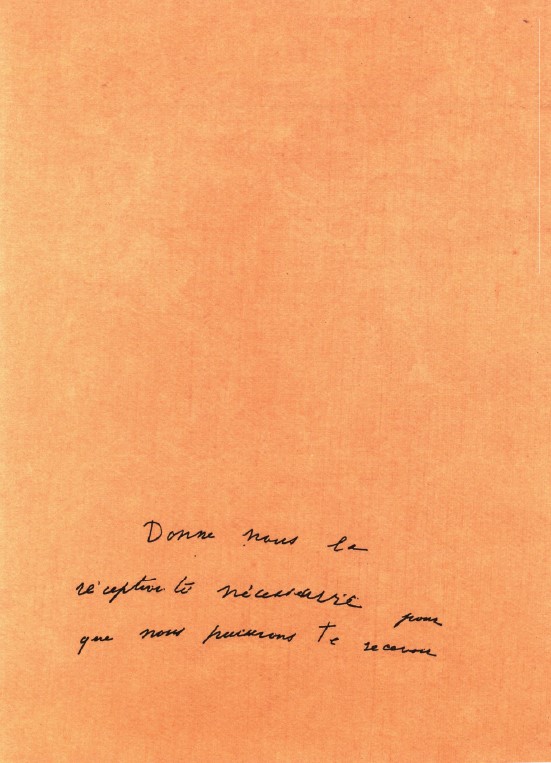 Donne nous la
réceptivité nécessaire pour
que nous puissions Te recevoir